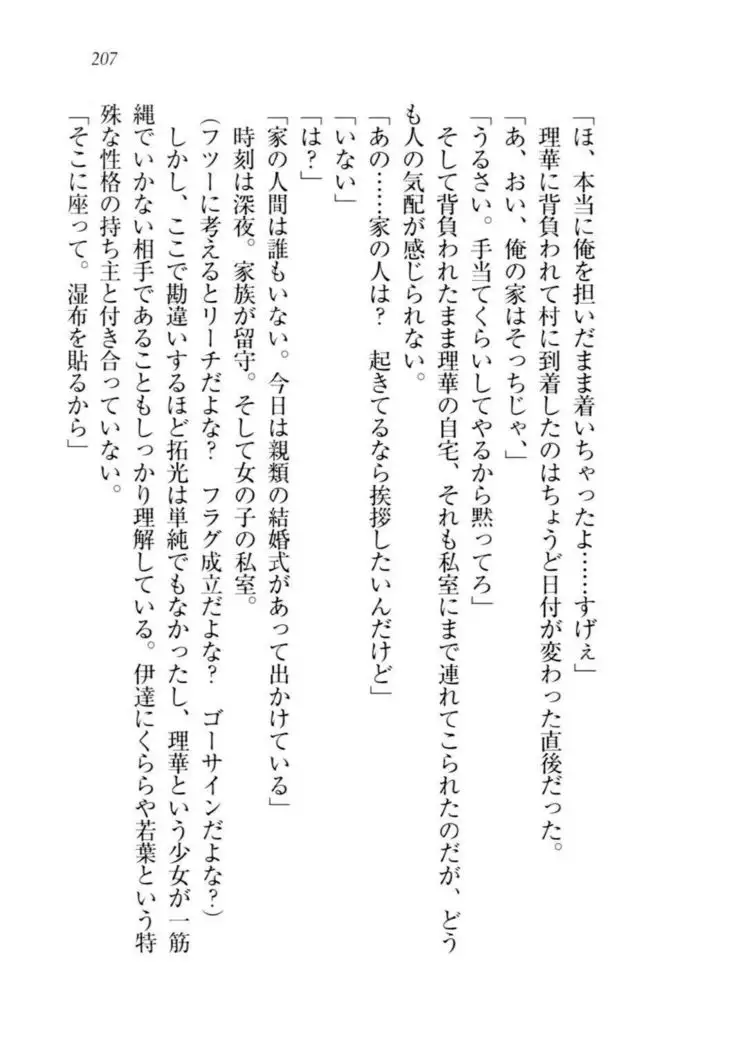 207
「ほ、本当に俺を担いだまま着いちゃったよ……すげぇ」
　理華に背負われて村に到着したのはちょうど日付が変わった直後だった。
「あ、おい、俺の家はそっちじゃ、」
「うるさい。手当てくらいしてやるから黙ってろ」
　そして背負われたまま理華の自宅、それも私室にまで連れてこられたのだが、どう
も人の気配が感じられない。
「あの……家の人は？　起きてるなら挨拶したいんだけど」
「いない」
「は？」
「家の人間は誰もいない。今日は親類の結婚式があって出かけている」
　時刻は深夜。家族が留守。そして女の子の私室。
（フツーに考えるとリーチだよな？　フラグ成立だよな？　ゴーサインだよな？）
　しかし、ここで勘違いするほど拓光は単純でもなかったし、理華という少女が一筋
縄でいかない相手であることもしっかり理解している。伊達にくららや若葉という特
殊な性格の持ち主と付き合っていない。
「そこに座って。湿布を貼るから」